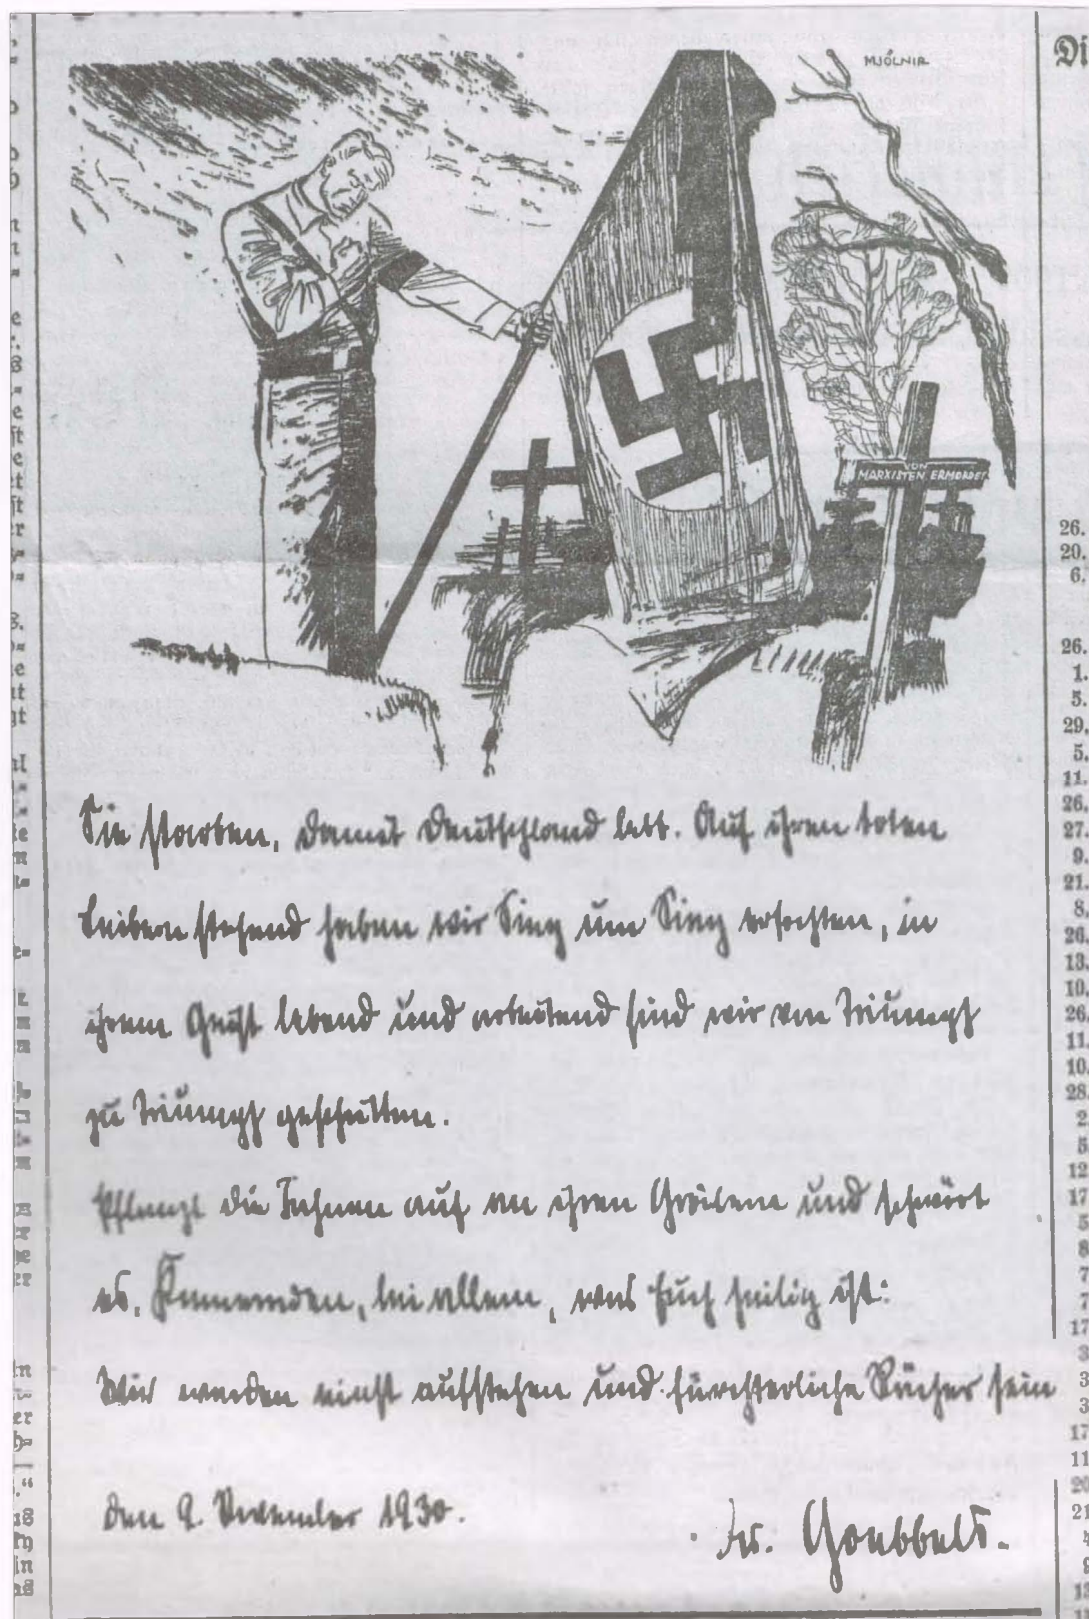 MJÖLNIR
VON
MARXISTEN ERMORDET
Sie starben, damit Deutschland lebt. Auf ihren toten
Leibern stehend haben wir Sieg um Sieg erfochten, in
ihrem Geist lebend und arbeitend sind wir von Triumph
zu Triumph geschritten.
Pflanzt die Fahnen auf an ihren Gräbern und schwört
es, Kameraden, bei allem, was Euch heilig ist:
Wir werden einst aufstehen und fürchterliche Rächer sein
Den 9. November 1930.
Dr. Goebbels.
Di
26.
20.
6.
26.
1.
5.
29.
5.
11.
26.
27.
9.
21.
8.
26.
13.
10.
26.
11.
10.
28.